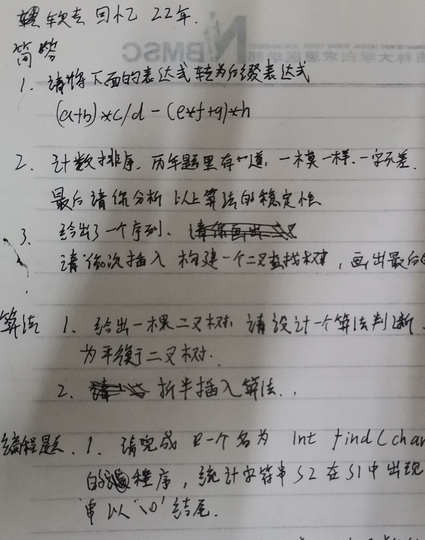 软专回忆 22年.
简答
1. 请将下面的表达式转为后缀表达式
(a+b)*c/d-(e*f+g)*h
2. 计数排序. 历年题里有一道, 一模一样. 一字不差.
最后请你分析以上算法的稳定性
3. 给出了一个序列.
请依次插入构建一个二叉查找树, 画出最后的
算法 1. 给出一棵二叉树. 请设计一个算法判断
为平衡二叉树.
2. 折半插入算法.
编程题. 1. 请完成一个名为 int find(char
的程序, 统计字符串S2在S1中出现
串以'\0'结尾.